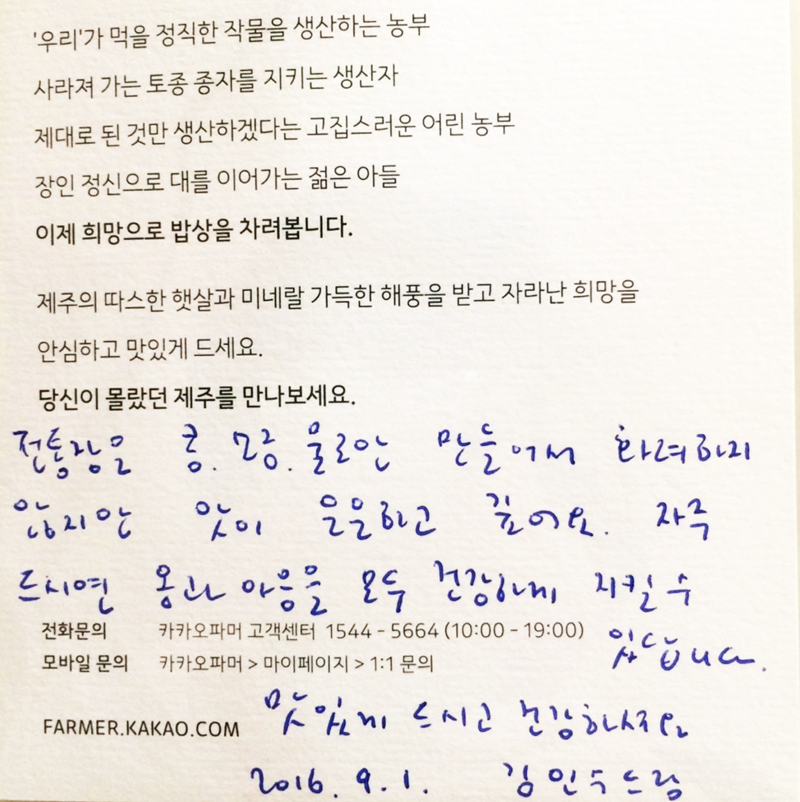 '우리'가 먹을 정직한 작물을 생산하는 농부
사라져 가는 토종 종자를 지키는 생산자
제대로 된 것만 생산하겠다는 고집스러운 어린 농부
장인 정신으로 대를 이어가는 젊은 아들
이제 희망으로 밥상을 차려봅니다.
제주의 따스한 햇살과 미네랄 가득한 해풍을 받고 자라난 희망을
안심하고 맛있게 드세요.
당신이 몰랐던 제주를 만나보세요.
전통장은 콩.소금.물로만 만들어서 화려하지
않지만 맛이 은은하고 깊어요. 자주
드시면 몸과 마음을 모두 건강하게 지킬 수
있답니다.
전화문의 카카오파머 고객센터 1544 - 5664 (10:00 - 19:00)
모바일 문의 카카오파머 > 마이페이지 > 1:1 문의
맛있게 드시고 건강하세요
FARMER.KAKAO.COM
2016. 9. 1. 김민수드림